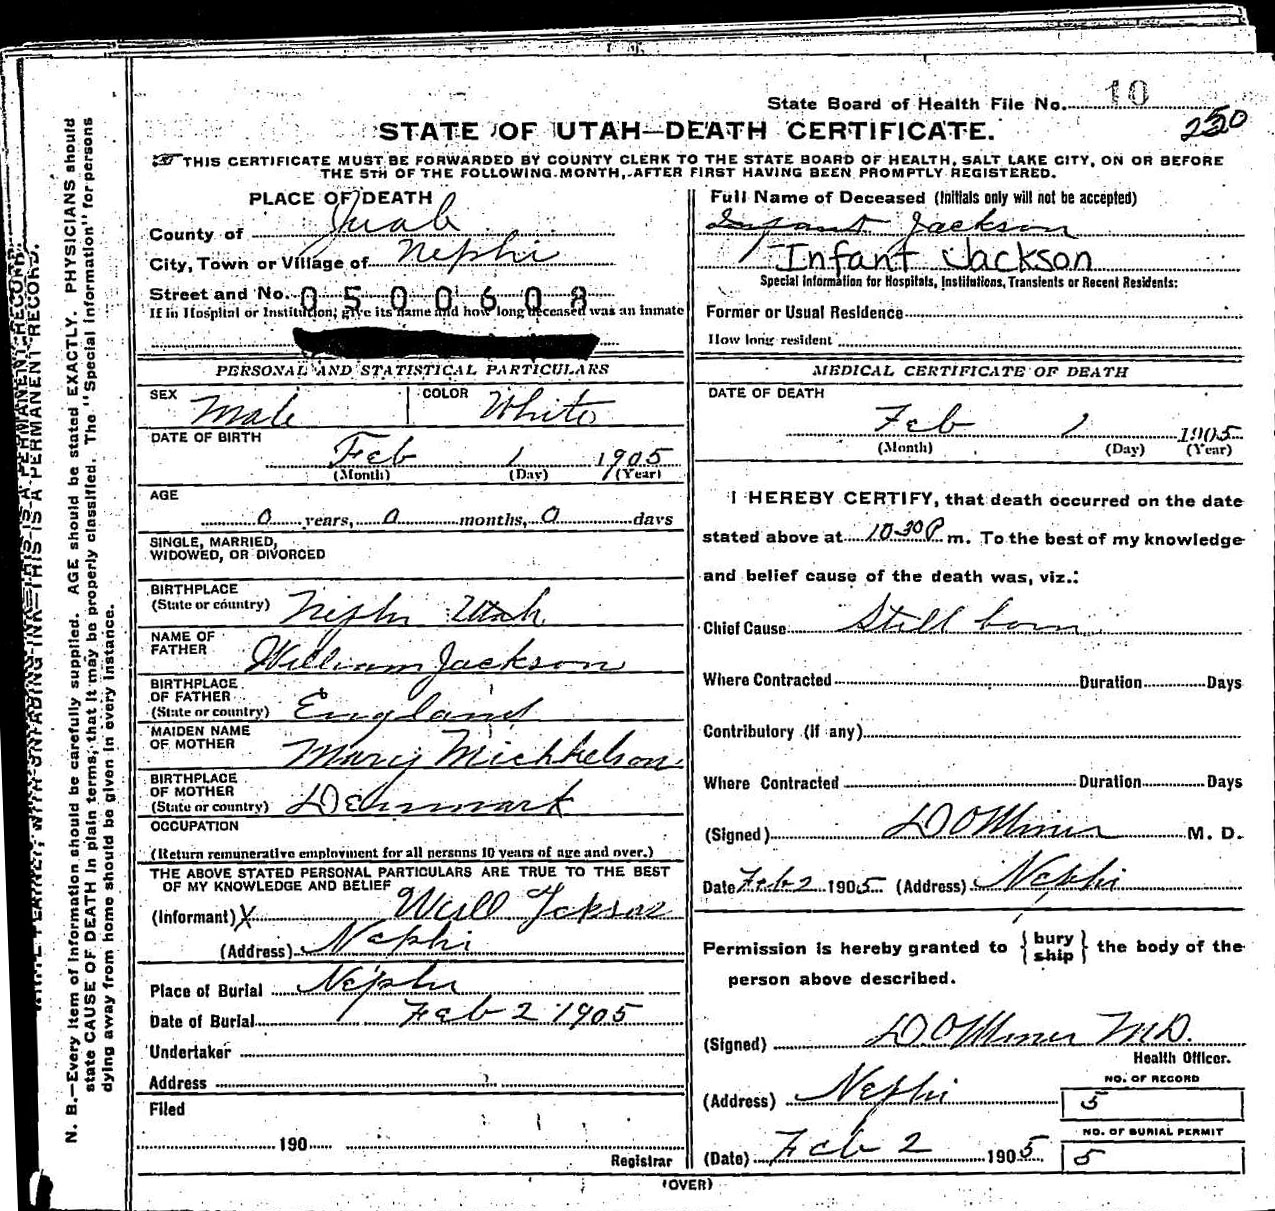 State Board of Health File No. 10
250
STATE OF UTAH—DEATH CERTIFICATE.
THIS CERTIFICATE MUST BE FORWARDED BY COUNTY CLERK TO THE STATE BOARD OF HEALTH, SALT LAKE CITY, ON OR BEFORE
THE 5TH OF THE FOLLOWING MONTH, AFTER FIRST HAVING BEEN PROMPTLY REGISTERED.
PLACE OF DEATH
County of Juab
City, Town or Village of Nephi
Street and No. 0500608
If in Hospital or Institution; give its name and how long deceased was an inmate
PERSONAL AND STATISTICAL PARTICULARS
SEX Male COLOR White
DATE OF BIRTH
Feb 1 1905
(Month) (Day) (Year)
AGE
0 years, 0 months, 0 days
SINGLE, MARRIED,
WIDOWED, OR DIVORCED
BIRTHPLACE
(State or country) Nephi Utah
NAME OF
FATHER William Jackson
BIRTHPLACE
OF FATHER
(State or country) England
MAIDEN NAME
OF MOTHER Mary Michkelson
BIRTHPLACE
OF MOTHER
(State or country) Denmark
OCCUPATION
(Return remunerative employment for all persons 10 years of age and over.)
THE ABOVE STATED PERSONAL PARTICULARS ARE TRUE TO THE BEST
OF MY KNOWLEDGE AND BELIEF
(Informant) X Will
(Address) Nephi
Place of Burial Nephi
Date of Burial Feb 2 1905
Undertaker
Address
Filed
190
Registrar
Full Name of Deceased (Initials only will not be accepted)
Infant Jackson
Infant Jackson
Special Information for Hospitals, Institutions, Transients or Recent Residents:
Former or Usual Residence
How long resident
MEDICAL CERTIFICATE OF DEATH
DATE OF DEATH
Feb 1 1905
(Month) (Day) (Year)
I HEREBY CERTIFY, that death occurred on the date
stated above at 10 30 P m. To the best of my knowledge
and belief cause of the death was, viz.:
Chief Cause Still born
Where Contracted Duration Days
Contributory (if any)
Where Contracted Duration Days
(Signed) D O Miner M. D.
Date Feb 2 1905 (Address) Nephi
Permission is hereby granted to { bury ship } the body of the
person above described.
(Signed) D O Miner M.D.
Health Officer.
(Address) Nephi
NO. OF RECORD
5
NO. OF BURIAL PERMIT
5
(Date) Feb 2 1905
(OVER)
N. B.—Every item of information should be carefully supplied. AGE should be stated EXACTLY. PHYSICIANS should
state CAUSE OF DEATH in plain terms, that it may be properly classified. The "Special Information" for persons
dying away from home should be given in every instance.
WITH UNFADING INK—THIS IS A PERMANENT RECORD.